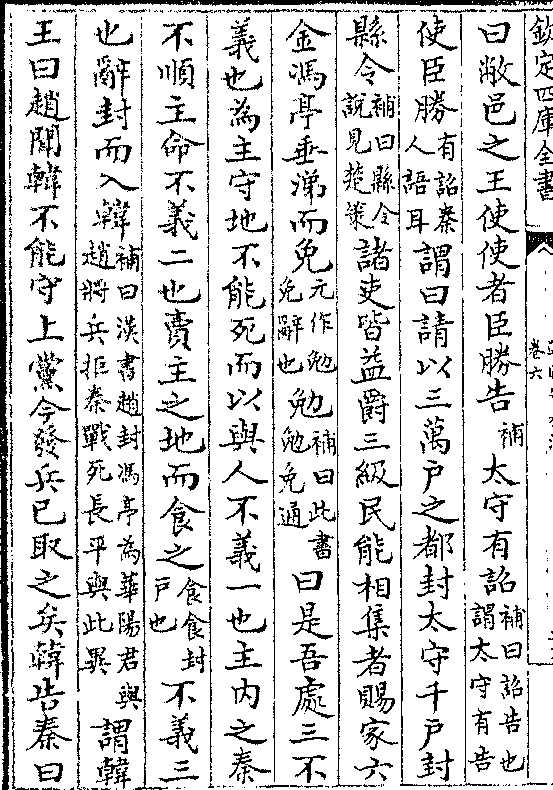 欽定四庫全書
卷六
曰敝邑之王使使者臣勝告補太守有詔補曰詔告也謂太守有告
使臣勝有詔秦人語耳謂曰請以三萬戶之都封太守千戶封
縣令補曰縣令說見楚策諸吏皆益爵三級民能相集者賜家六
金馮亭垂涕而免元作勉免辭也勉補曰此書勉免通曰是吾處三不
義也為主守地不能死而以與人不義一也主內之秦
不順主命不義二也賣主之地而食之食食封戶也不義三
也辭封而入韓補曰漢書趙封馮亭為華陽君與趙將兵拒秦戰死長平與此異謂韓
王曰趙聞韓不能守上黨今發兵已取之矣韓告秦曰